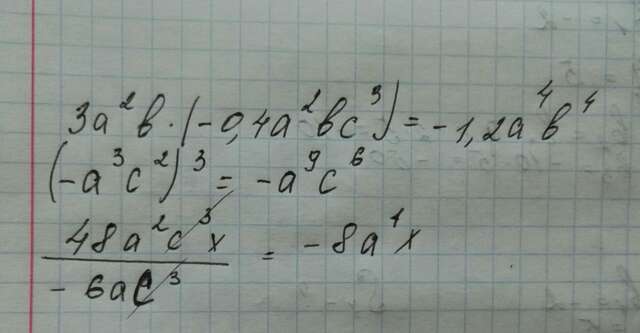 3a²b · (-0,4a²bc³) = -1,2a⁴b⁴
(-a³c²)³ = -a⁹c⁶
48a²c³x / -6ac³ = -8a¹x